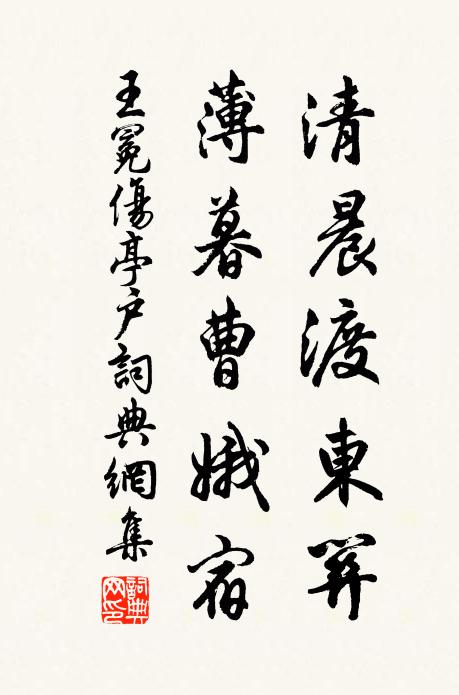 清晨渡東關
薄暮曹娥宿
王冕傷亭戶詞典網集
詞典网印